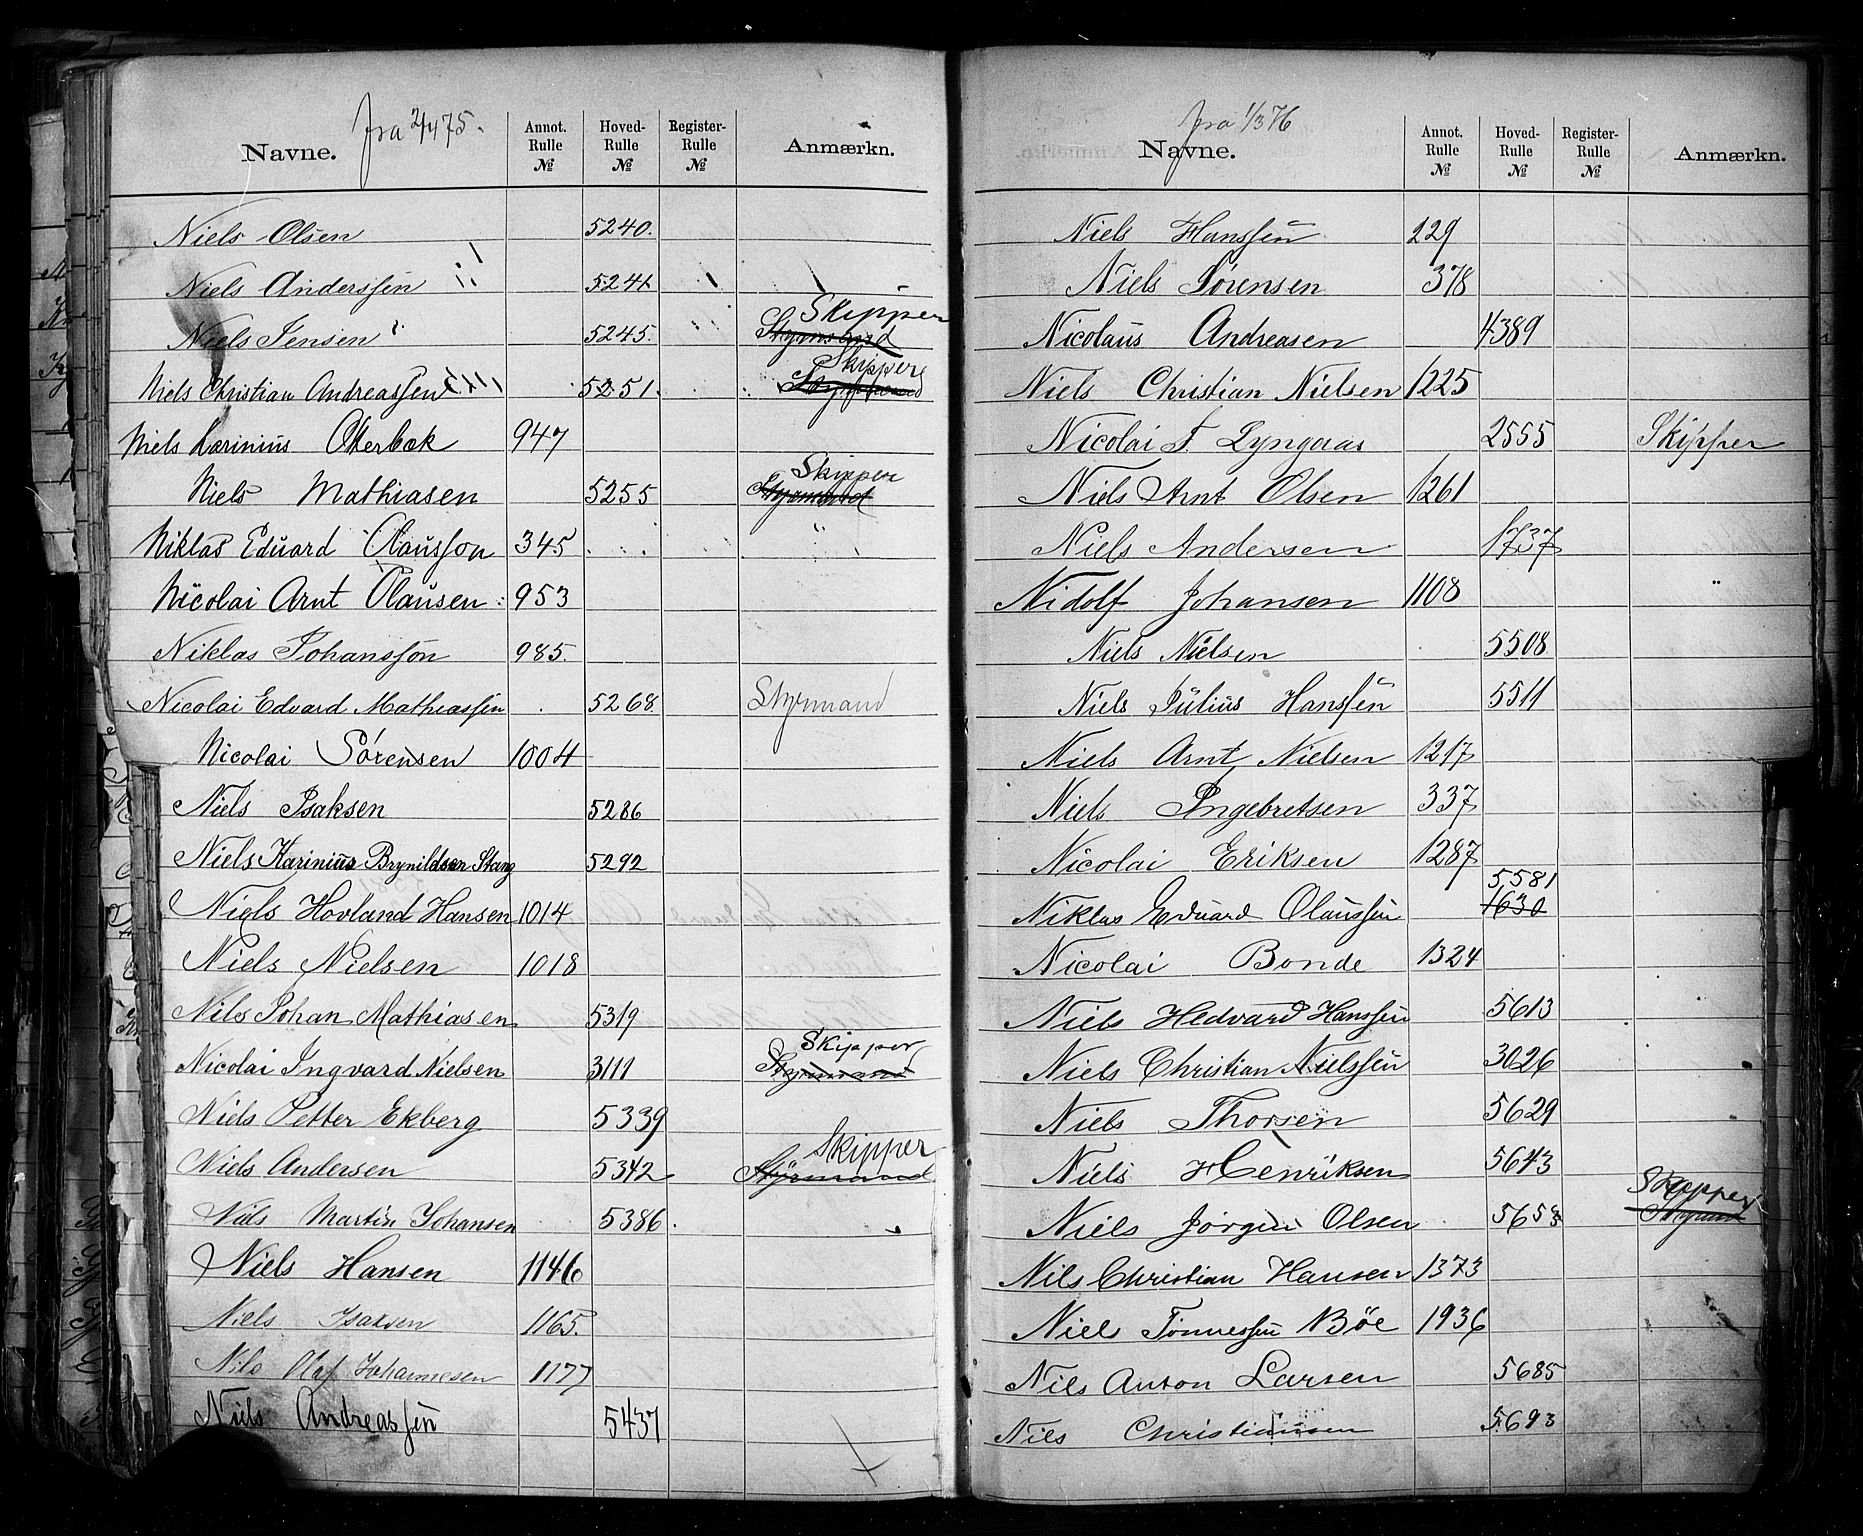 fra 2/4 75.
Navne. Annot. Rulle № Hoved-Rulle № Register-Rulle № Anmærkn.
Niels Olsen 5240.
Niels Anderssen 5241
Niels Jensen 5245. Skipper Styrmand
Niels Christian Andreassen 5251. Skipper Styrmand
Niels Larinius Otterbek 947
Niels Mathiasen 5255 Skipper Styrmand
Niklas Eduard Olausson 345 "
Nicolai Arnt Olausen 953
Niklas Johansson 985.
Nicolai Edvard Mathiassen 5268 Styrmand
Nicolai Sörensen 1004
Niels Isaksen 5286
Niels Karinius Brynildsen Stang 5292
Niels Hovland Hansen 1014
Niels Nielsen 1018
Nils Johan Mathiasen 5319
Nicolai Ingvard Nielsen 3111 Skipper Styrmand
Niels Petter Ekberg 5339
Niels Andersen 5342 Skipper Styrmand
Niels Martin Johansen 5386.
Niels Hansen 1146
Niels Isaksen 1165.
Nils Olaf Johannesen 1177
Niels Andreassen 5437
fra 1/3 76
Navne. Annot. Rulle № Hoved-Rulle № Register-Rulle № Anmærkn.
Niels Hanssen 229
Niels Sörensen 378
Nicolaus Andreasen 4389
Niels Christian Nielsen 1225
Nicolai F. Lyngaas 2555 Skipper
Niels Arnt Olsen 1261
Niels Andersen 1737
Nidolf Johansen 1108 "
Niels Nielsen 5508
Niels Julius Hanssen 5511
Niels Arnt Nielsen 1217
Niels Ingebretsen 337
Nicolai Eriksen 1287
Niklas Eduard Olaussen 5581 1630
Nicolai Bonde 1324
Niels Hedvard Hanssen 5613
Niels Christian Nielssen 3026
Niels Thorsen 5629
Niels Henriksen 5643
Niels Jörgen Olsen 5653 Skipper Styrmand
Nils Christian Hansen 1373
Niels Tönnessen Böe 1936
Nils Anton Larsen 5685
Nils Christiansen 5693